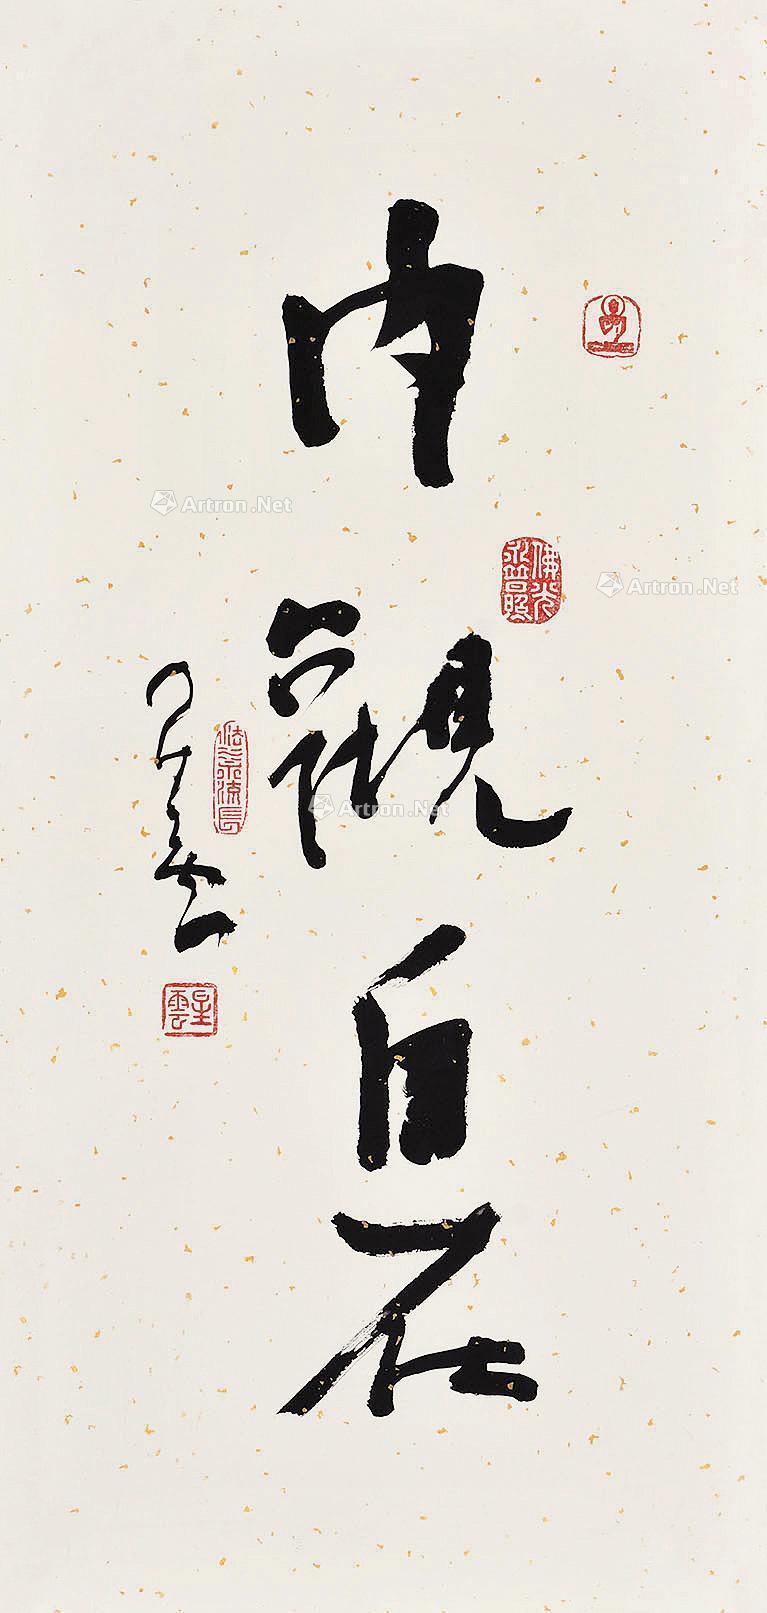 內觀自在
星雲
佛光
永普照
法水流長
星雲
Artron.Net
Artron.Net
Artron.Net